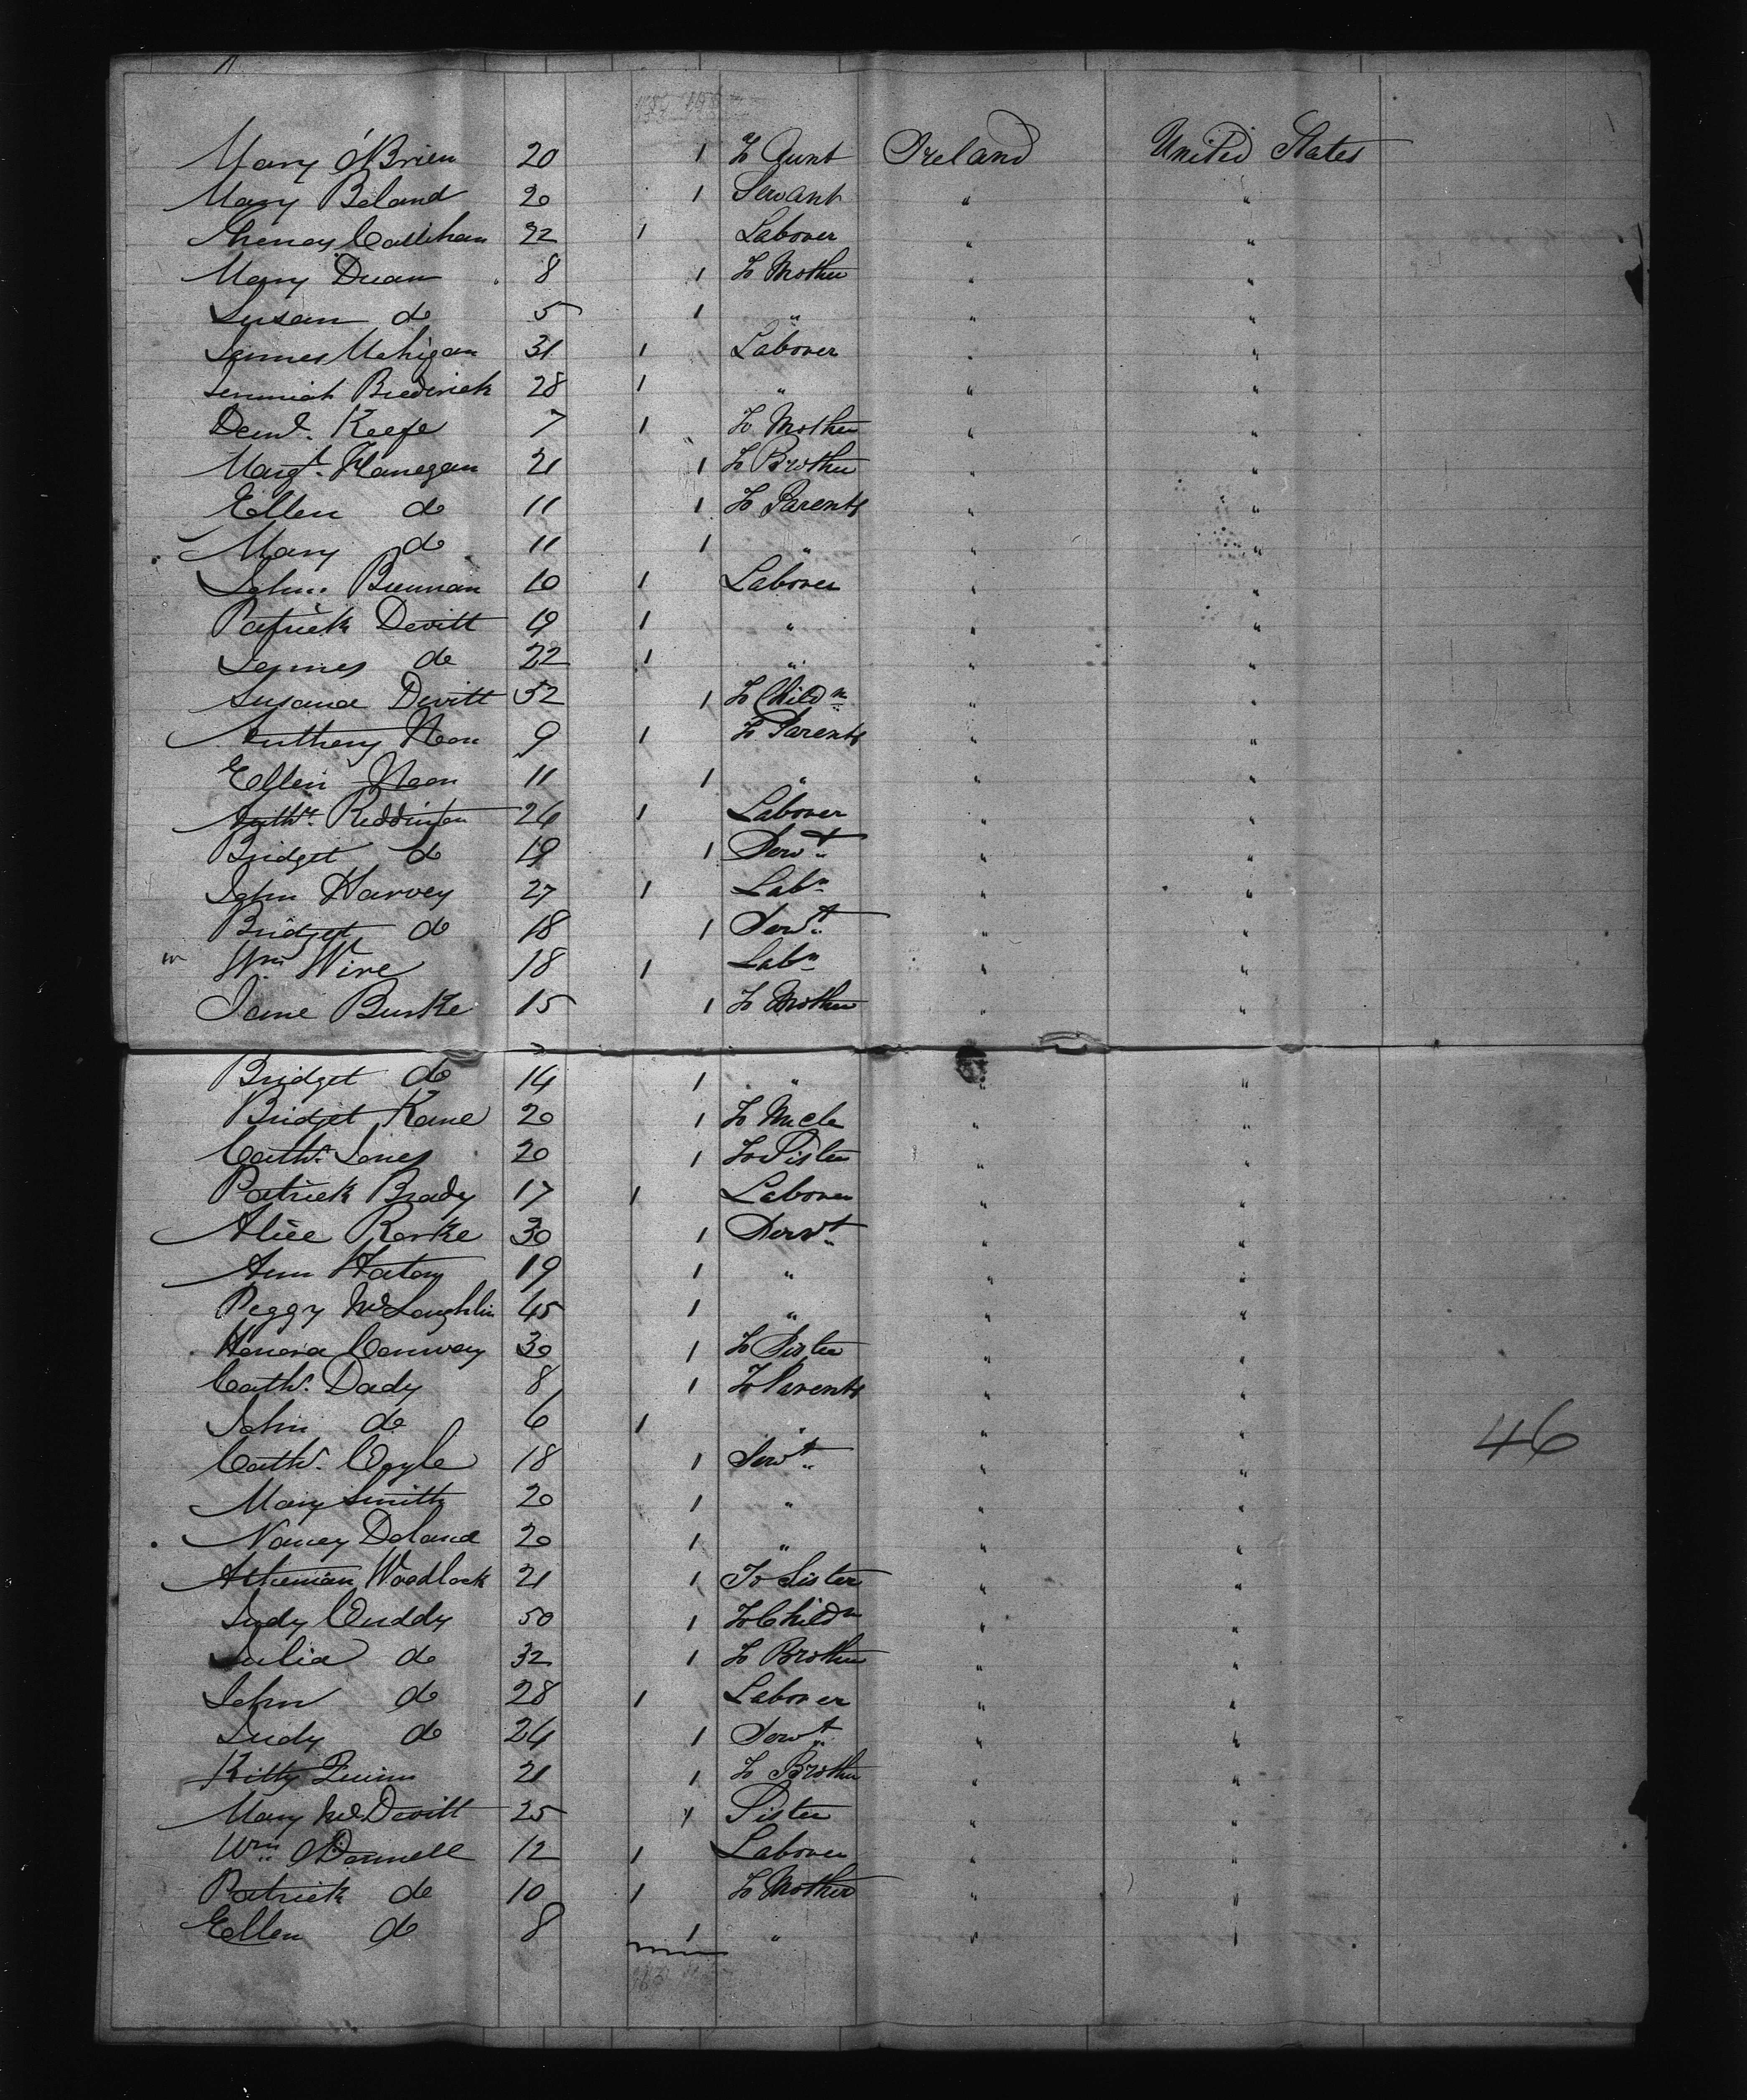 Mary O'Brien 20 1 To Aunt Ireland United States
Mary Boland 20 1 Servant " "
Callihan 22 1 Laborer " "
Mary Duan 8 1 To Mother " "
Susan do 5 1 " " "
James Mehigan 31 1 Laborer " "
Jeremiah Brederick 28 1 " " "
Denl. Keefe 7 1 To Mother " "
Margt. Flanegan 21 1 To Brother " "
Ellen do 11 1 To Parents " "
Mary do 11 1 " " "
John Brennan 10 1 Laborer " "
Patrick Devitt 19 1 " " "
James do 22 1 " " "
Susana Devitt 52 1 To Childn " "
Anthony Noon 9 1 To Parents " "
Ellen Noon 11 1 " " "
Anthy. Reddinton 24 1 Laborer " "
Bridget do 19 1 Servt. " "
John Harvey 27 1 Labr " "
Bridget do 18 1 Servt. " "
Wm Wire 18 1 Labr " "
Jane Burke 15 1 To Mother " "
Bridget do 14 1 " " "
Bridget Kane 20 1 To Uncle " "
Cathe. Jones 20 1 To Sister " "
Patrick Brady 17 1 Laborer " "
Alice Rorke 30 1 Servt. " "
Ann 19 1 " " "
Peggy McLoughlin 45 1 " " "
Honora Conway 30 1 To Sister " "
Cathe. Dady 8 1 To Parents " "
John do 6 1 " " "
46
Cathe. Coyle 18 1 Servt. " "
Mary Smith 20 1 " " "
Nancy Doland 20 1 " " "
Woodlock 21 1 To Sister " "
Judy Cuddy 50 1 To Childn " "
Julia do 32 1 To Brother " "
John do 28 1 Laborer " "
Judy do 24 1 Servt. " "
Kitty Quinn 21 1 To Brother " "
Mary McDevitt 25 1 Sister " "
Wm. O'Donnell 12 1 Laborer " "
Patrick do 10 1 To Mother " "
Ellen do 8 1 " " "